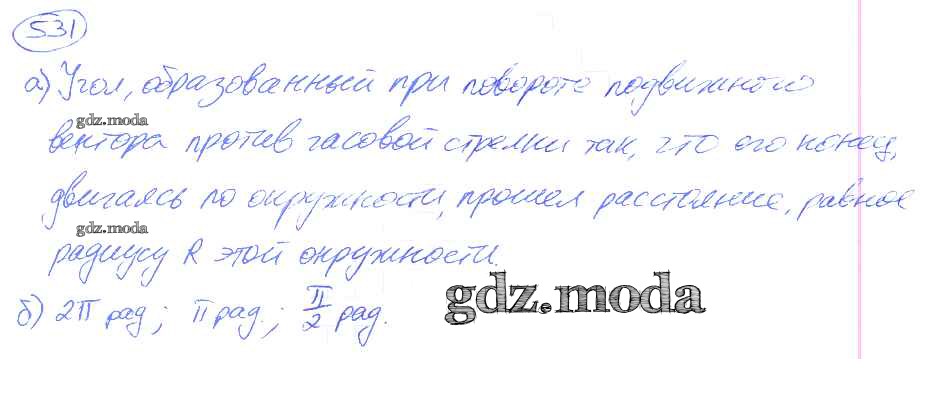 531
а) Угол, образованный при повороте подвижного
gdz.moda
вектора против часовой стрелки так, что его конец,
двигаясь по окружности, прошел расстояние, равное
gdz.moda
радиусу R этой окружности.
б) 2π рад; π рад.; π/2 рад.
gdz.moda